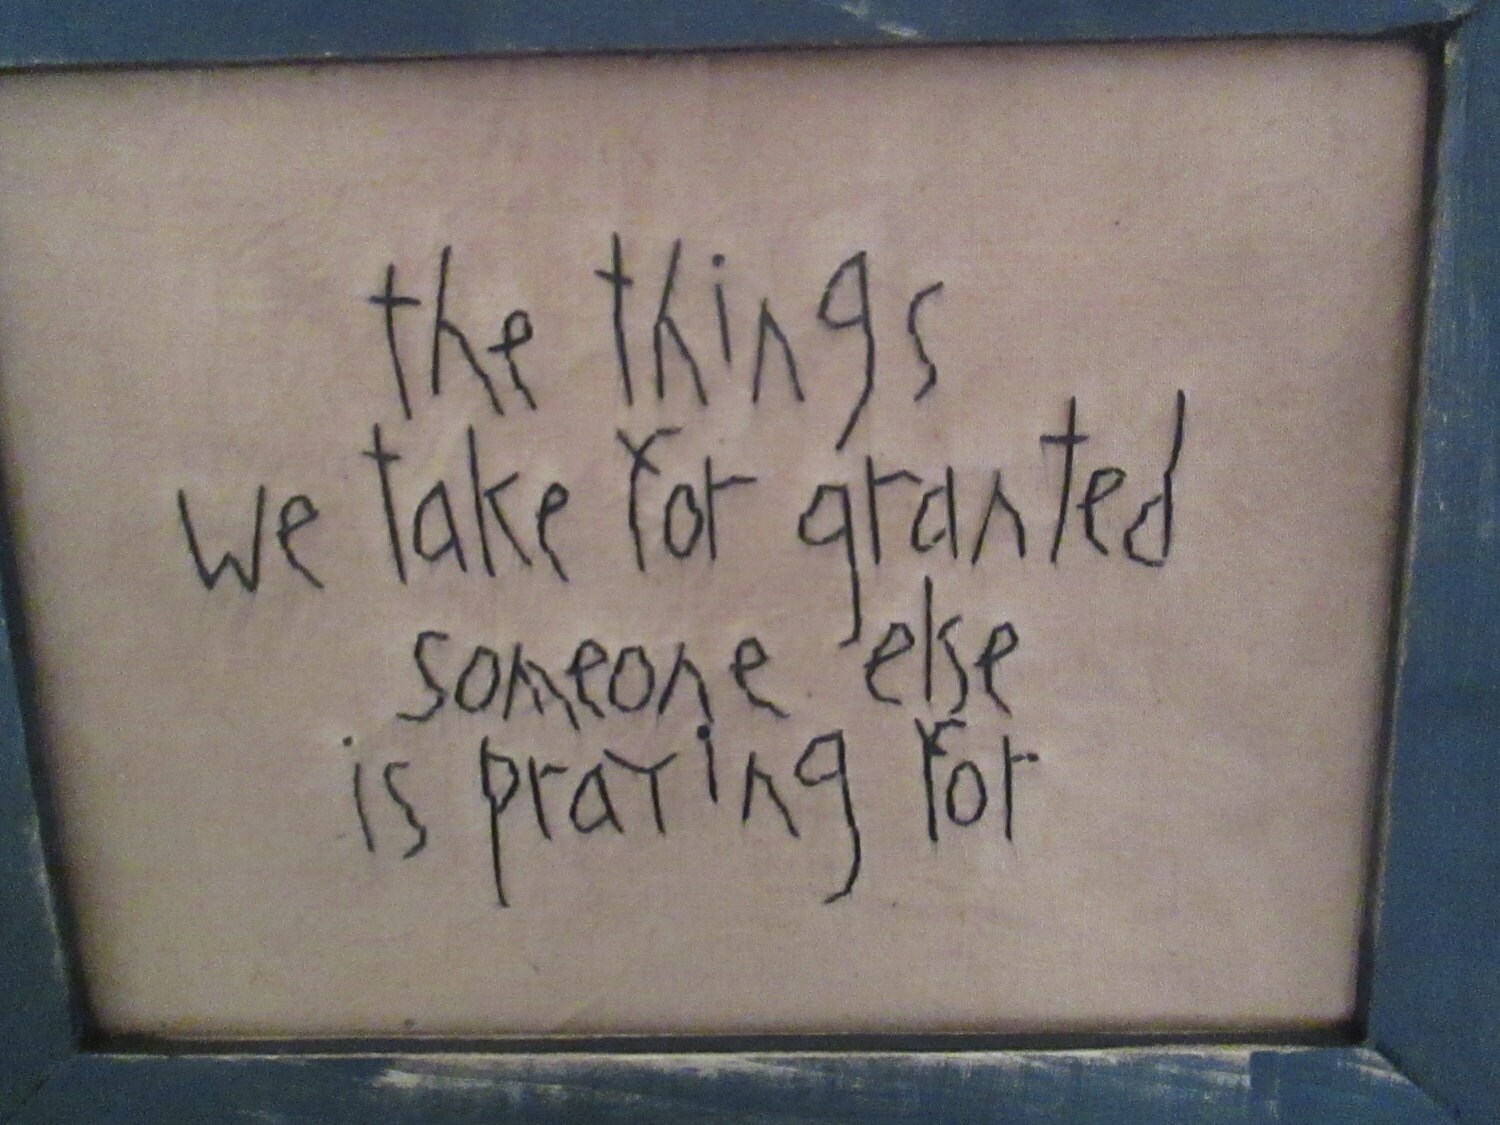 the things
we take for granted
someone else
is praying for